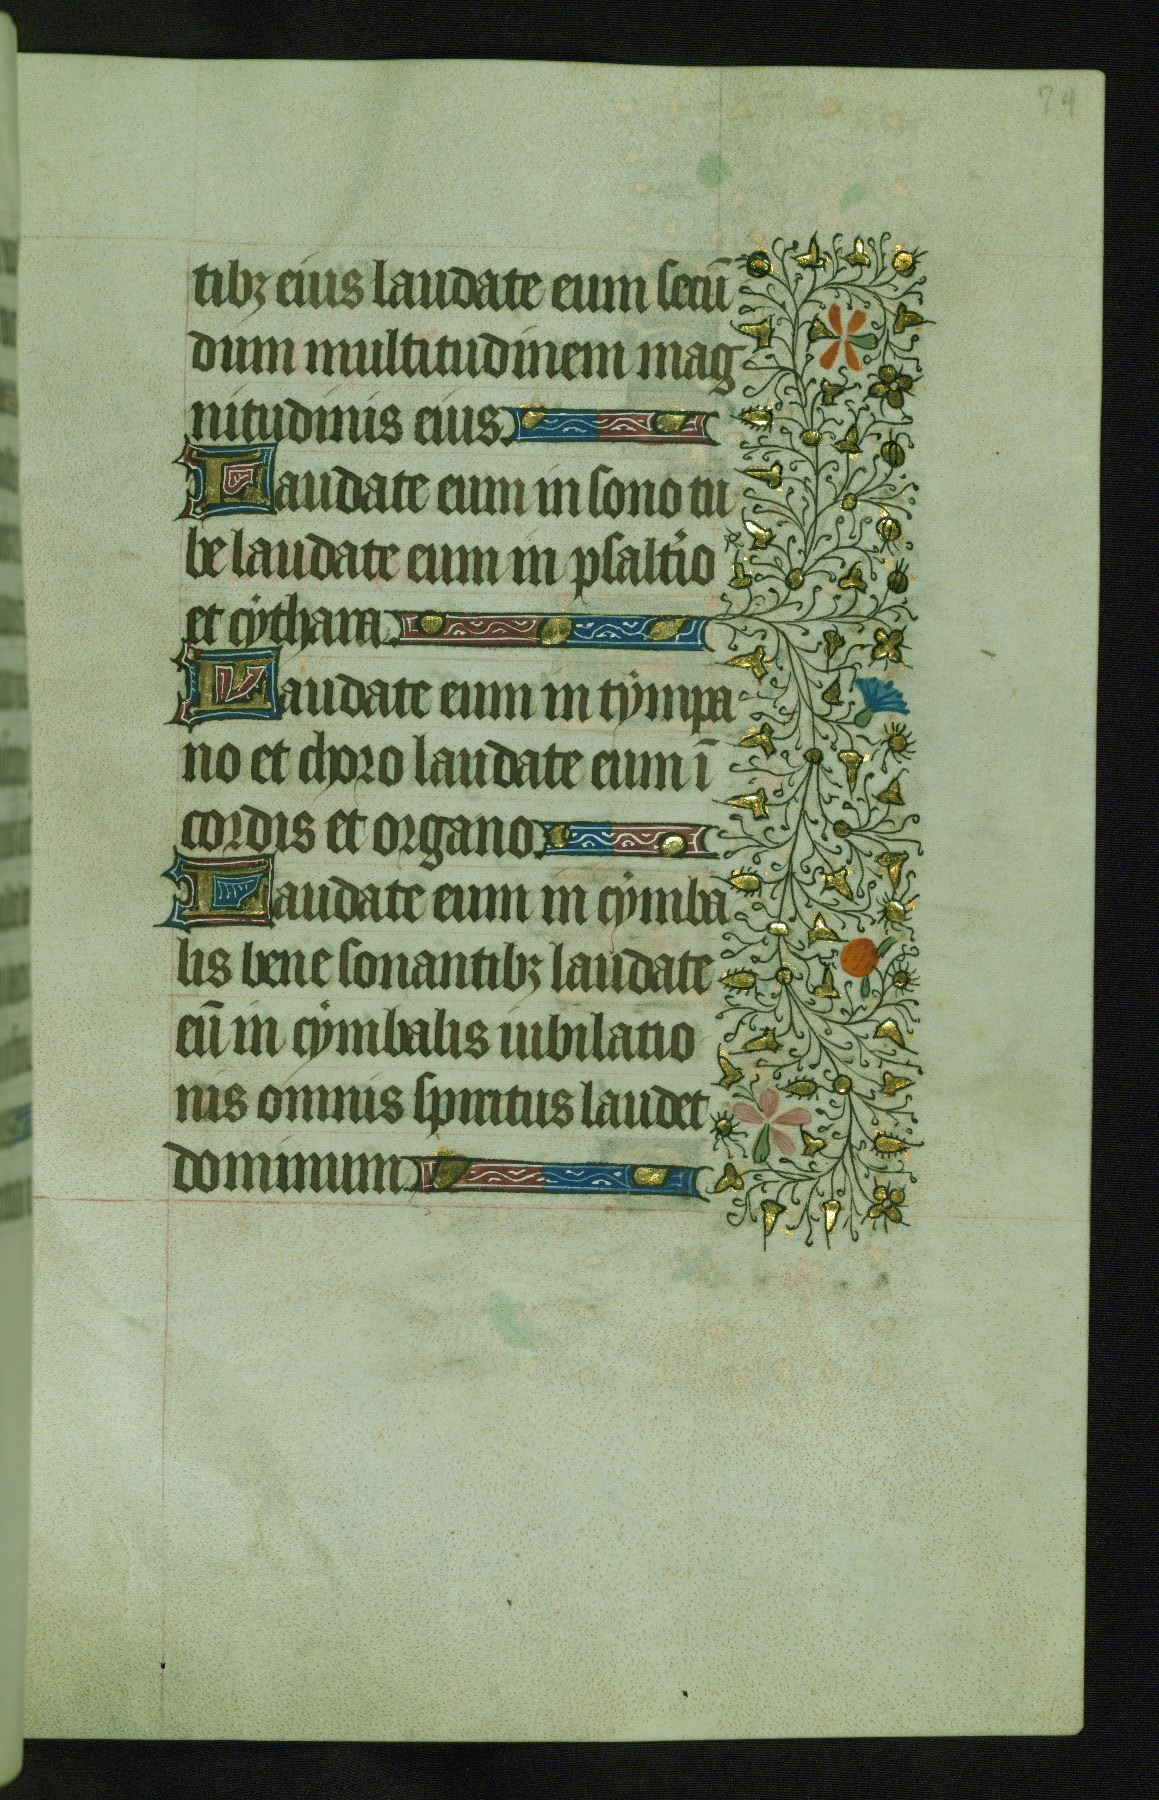 74
tibꝫ eius laudate eum secū
dum multitudinem mag
nitudinis eius.
Laudate eum in sono tu
be laudate eum in psaltio
et cythara.
Laudate eum in tympa
no et choro laudate eum ī
cordis et organo.
Laudate eum in cymba
lis bene sonantibꝫ laudate
eū in cymbalis iubilatio
nis omnis spiritus laudet
dominum.